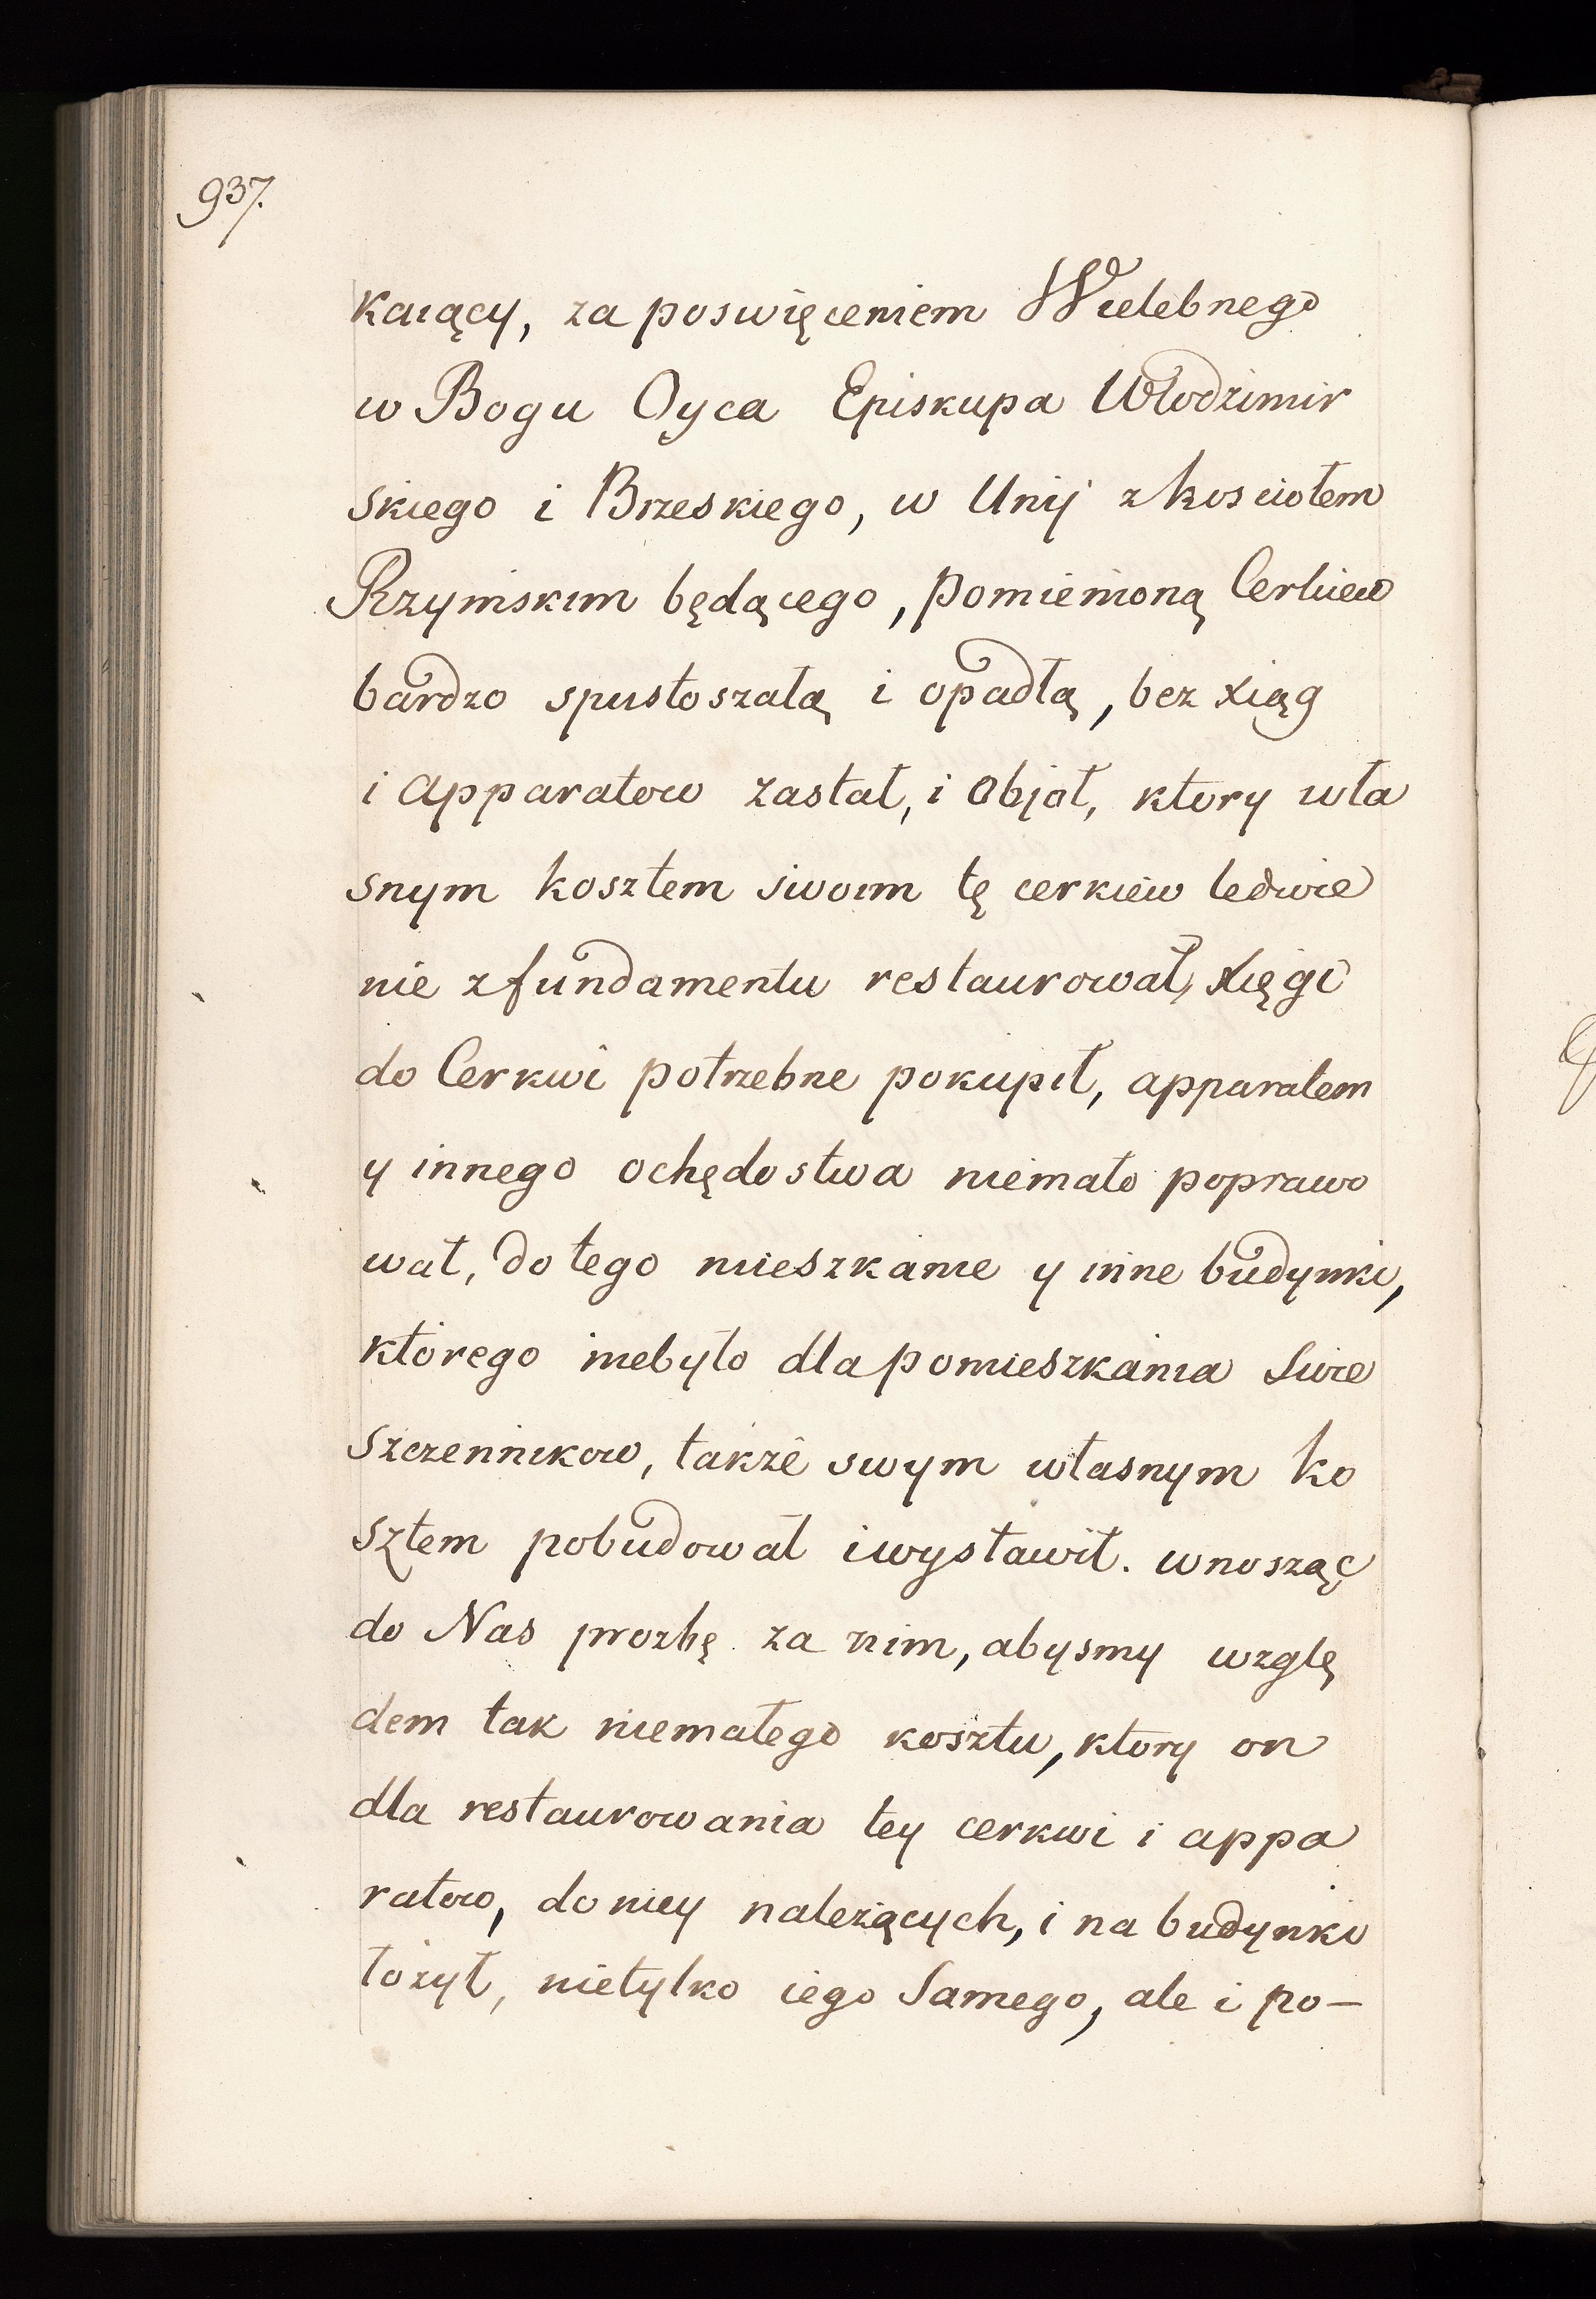 937.
kaiący, za poswięceniem Wielebnego
w Bogu Oyca Episkupa Włodzimir
skiego i Brzeskiego, w Unij z kosciołem
Rzymskim będącego, pomienioną Cerkiew
bardzo spustoszałą i opadłą, bez xiąg
i apparatow zastał, i objoł, ktory wła
snym kosztem swoim tę cerkiew ledwie
nie z fundamentu restaurował, xięgi
do Cerkwi potrzebne pokupił, apparatem
y innego ochędostwa niemało poprawo
wał, do tego mieszkanie y inne budynki,
którego niebyło dla pomieszkania Swie
szczennikow, także swym własnym ko
sztem pobudował i wystawił. wnosząc
do Nas prozbę za nim, abysmy wzglę
dem tak niemałego kosztu, ktory on
dla restaurowania tey cerkwi i appa
ratow, do niey należących, i na budynki
łożył, nietylko iego Samego, ale i po-